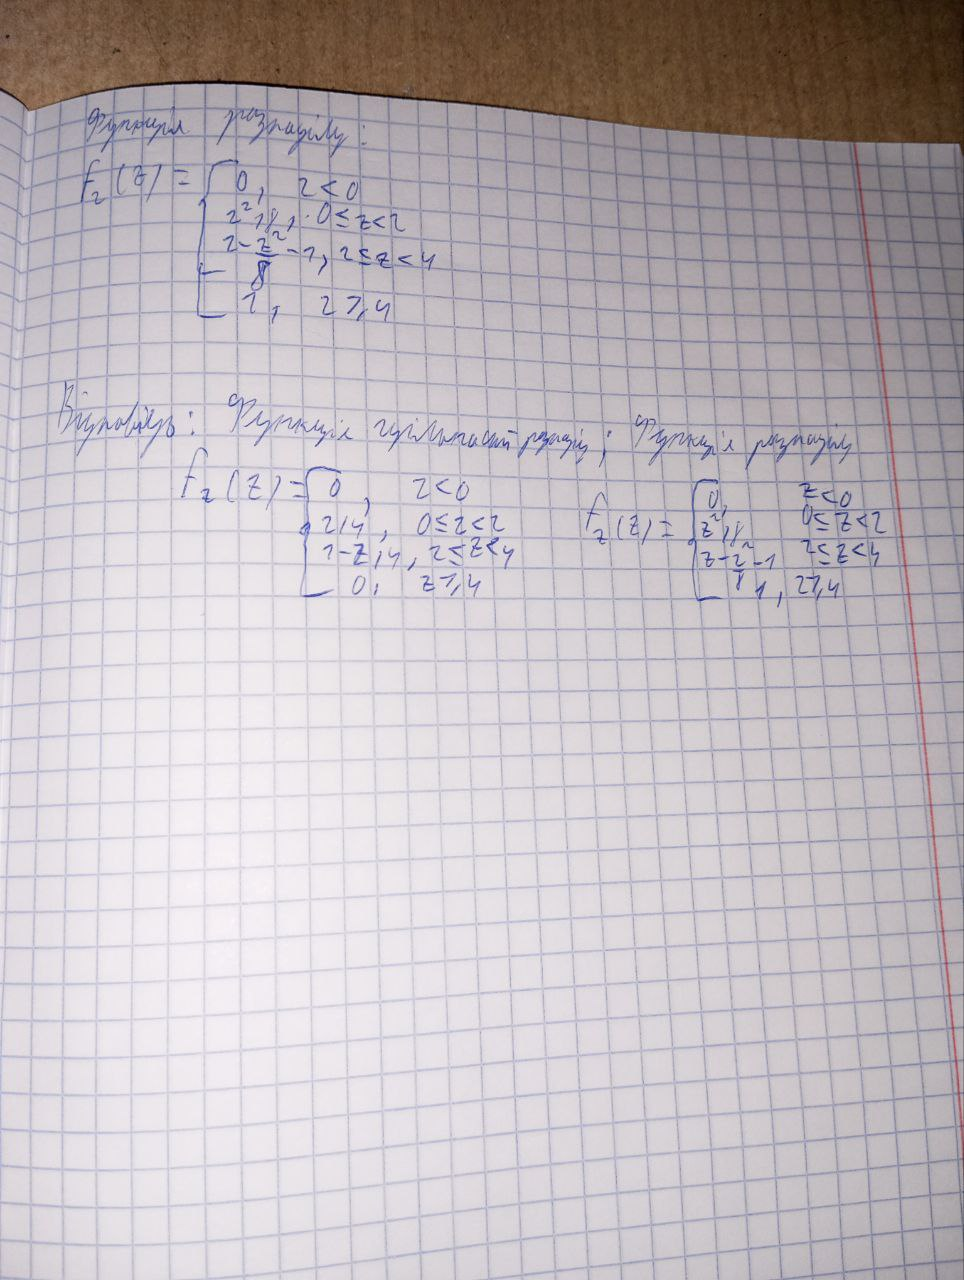 Функція розподілу:
f_z(z) = { 0, z<0
z²/8, 0≤z<2
z-z²/8-1, 2≤z<4
1, z≥4
Відповідь: Функція щільності розподілу; Функція розподілу
f_z(z) = { 0, z<0
z/4, 0≤z<2
1-z/4, 2≤z<4
0, z≥4
f_z(z) = { 0, z<0
z²/8 0≤z<2
z-z²/8-1 2≤z<4
1, z≥4